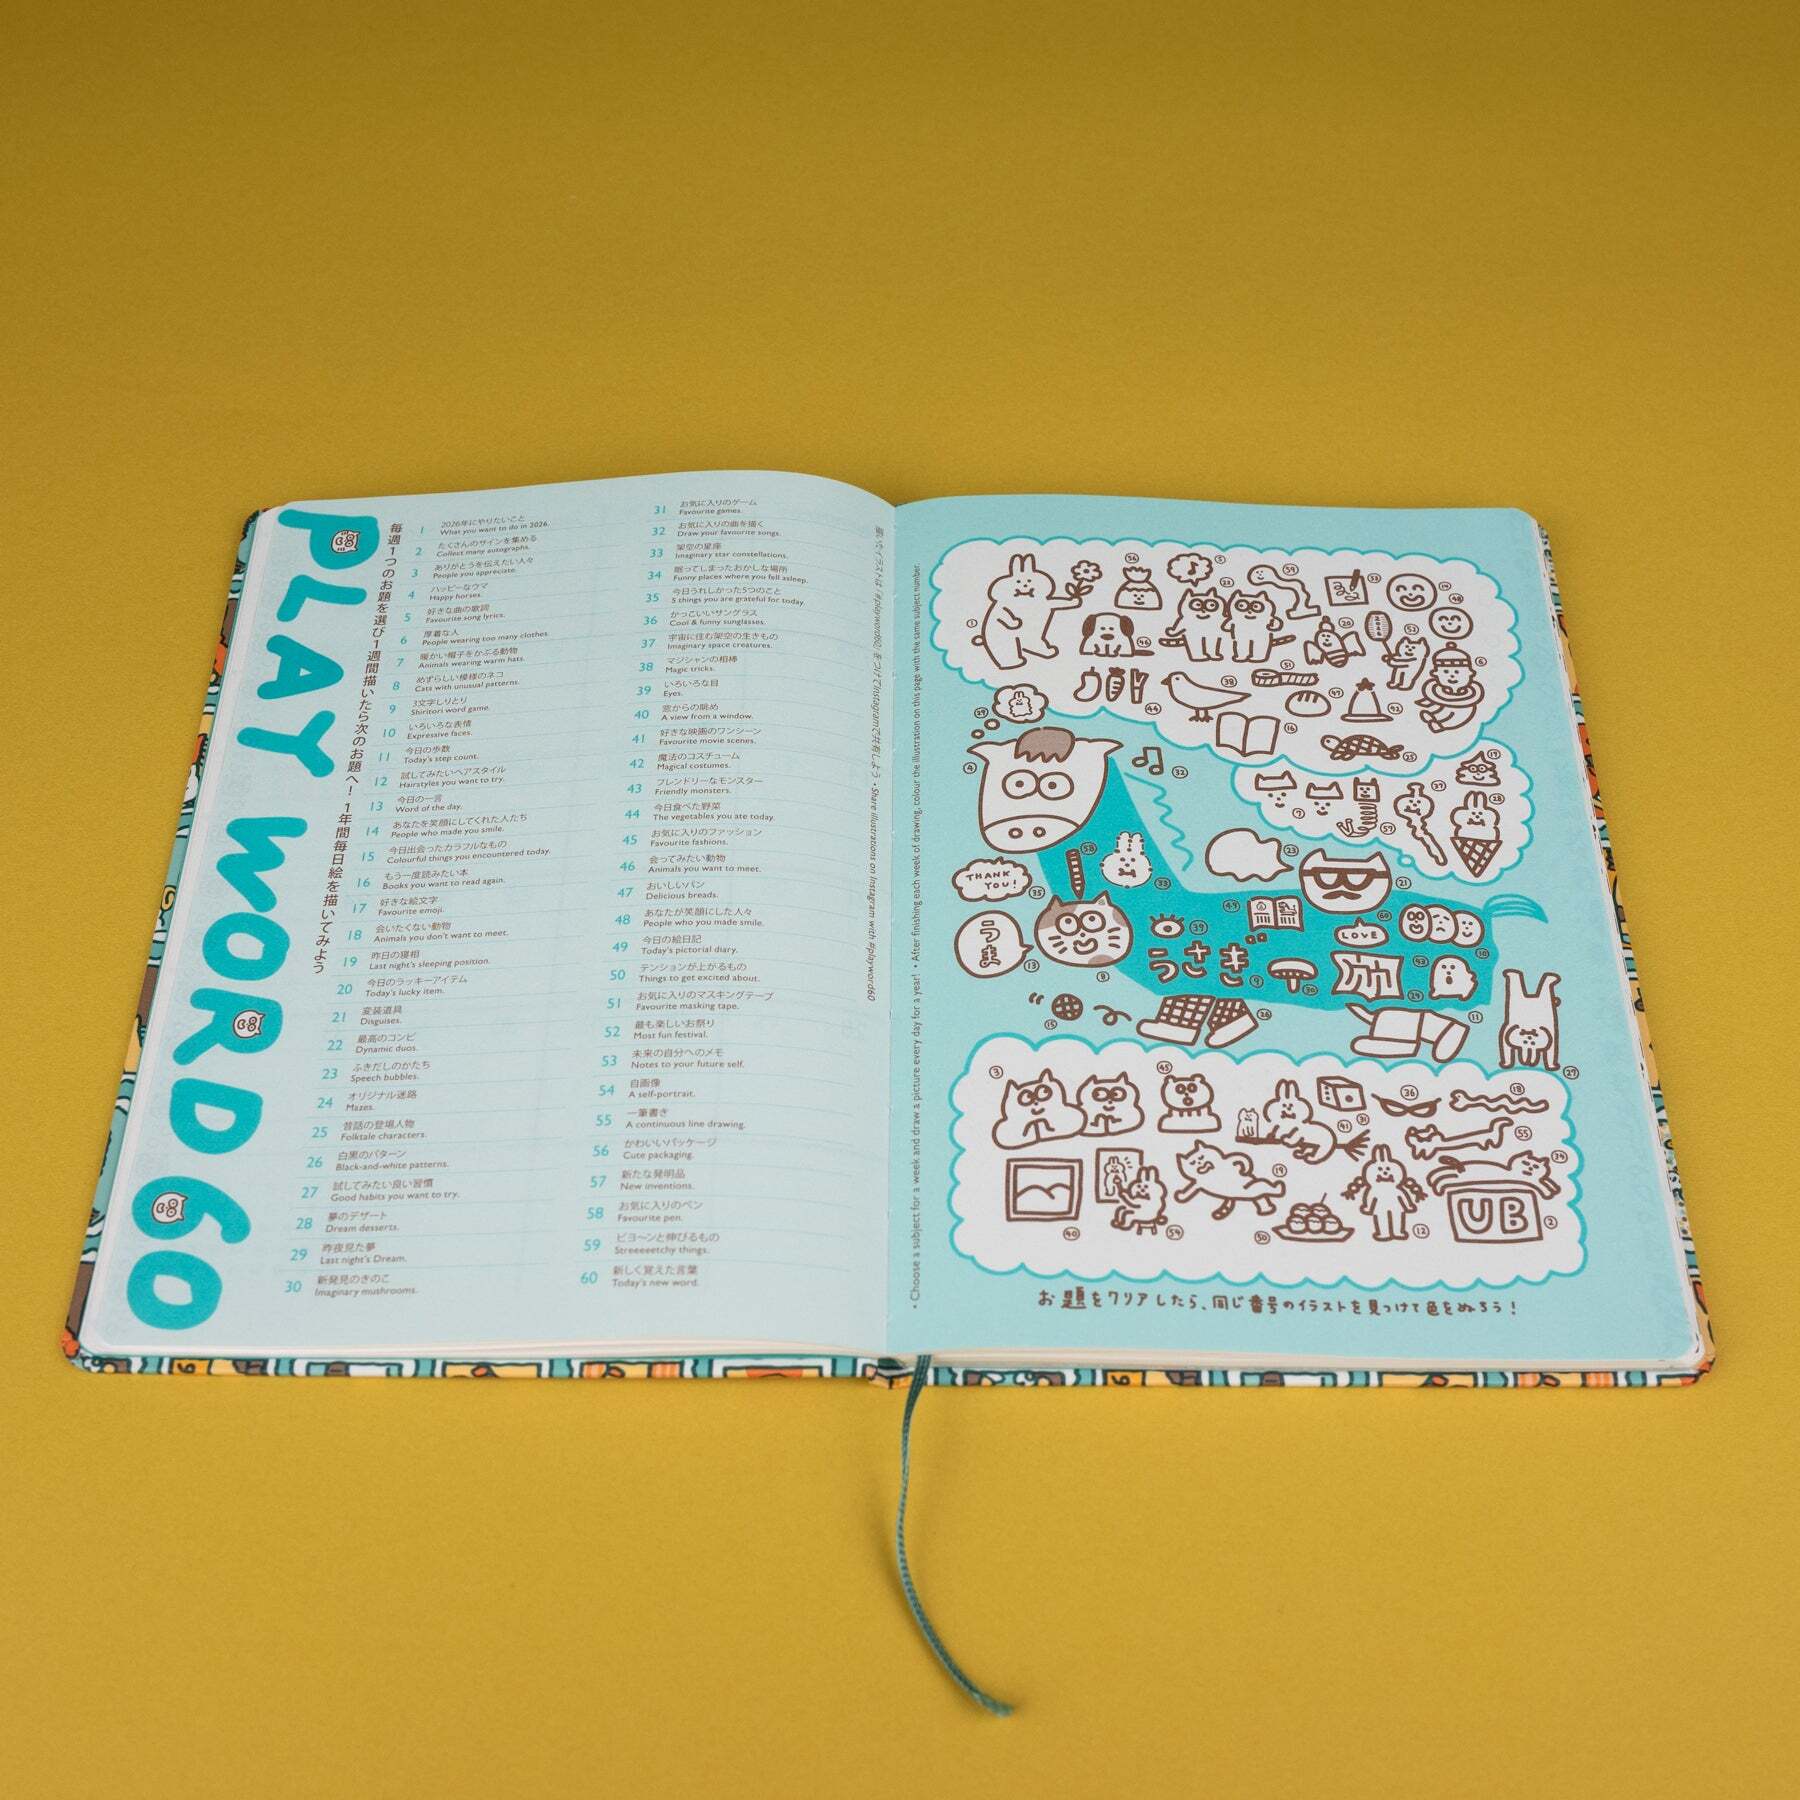 PLAY WORD 60
毎週1つのお題を選び1週間描いたら次のお題へ！ 1年間毎日絵を描いてみよう
1 2026年にやりたいこと
What you want to do in 2026.
2 たくさんのサインを集める
Collect many autographs.
3 ありがとうを伝えたい人々
People you appreciate.
4 ハッピーなウマ
Happy horses.
5 好きな曲の歌詞
Favourite song lyrics.
6 厚着な人
People wearing too many clothes.
7 暖かい帽子をかぶる動物
Animals wearing warm hats.
8 めずらしい模様のネコ
Cats with unusual patterns.
9 3文字しりとり
Shiritori word game.
10 いろいろな表情
Expressive faces.
11 今日の歩数
Today's step count.
12 試してみたいヘアスタイル
Hairstyles you want to try.
13 今日の一言
Word of the day.
14 あなたを笑顔にしてくれた人たち
People who made you smile.
15 今日出会ったカラフルなもの
Colourful things you encountered today.
16 もう一度読みたい本
Books you want to read again.
17 好きな絵文字
Favourite emoji.
18 会いたくない動物
Animals you don't want to meet.
19 昨日の寝相
Last night's sleeping position.
20 今日のラッキーアイテム
Today's lucky item.
21 変装道具
Disguises.
22 最高のコンビ
Dynamic duos.
23 ふきだしのかたち
Speech bubbles.
24 オリジナル迷路
Mazes.
25 昔話の登場人物
Folktale characters.
26 白黒のパターン
Black-and-white patterns.
27 試してみたい良い習慣
Good habits you want to try.
28 夢のデザート
Dream desserts.
29 昨夜見た夢
Last night's Dream.
30 新発見のきのこ
Imaginary mushrooms.
31 お気に入りのゲーム
Favourite games.
32 お気に入りの曲を描く
Draw your favourite songs.
33 架空の星座
Imaginary star constellations.
34 眠ってしまったおかしな場所
Funny places where you fell asleep.
35 今日うれしかった5つのこと
5 things you are grateful for today
36 かっこいいサングラス
Cool & funny sunglasses.
37 宇宙に住む架空の生きもの
Imaginary space creatures.
38 マジシャンの相棒
Magic tricks.
39 いろいろな目
Eyes.
40 窓からの眺め
A view from a window.
41 好きな映画のワンシーン
Favourite movie scenes.
42 魔法のコスチューム
Magical costumes.
43 フレンドリーなモンスター
Friendly monsters.
44 今日食べた野菜
The vegetables you ate today.
45 お気に入りのファッション
Favourite fashions.
46 会ってみたい動物
Animals you want to meet.
47 おいしいパン
Delicious breads.
48 あなたが笑顔にした人々
People who you made smile.
49 今日の絵日記
Today's pictorial diary.
50 テンションが上がるもの
Things to get excited about.
51 お気に入りのマスキングテープ
Favourite masking tape.
52 最も楽しいお祭り
Most fun festival.
53 未来の自分へのメモ
Notes to your future self.
54 自画像
A self-portrait.
55 一筆書き
A continuous line drawing.
56 かわいいパッケージ
Cute packaging.
57 新たな発明品
New inventions.
58 お気に入りのペン
Favourite pen.
59 ビヨ〜ンと伸びるもの
Streeeeetchy things.
60 新しく覚えた言葉
Today's new word.
描いたイラストは #playword60 をつけてInstagramで共有しよう • Share illustrations on Instagram with #playword60
• Choose a subject for a week and draw a picture every day for a year! • After finishing each week of drawing, colour the illustration on this page with the same subject number.
2026
THANK YOU!
うま
うさぎ
LOVE
UB
お題をクリアしたら、同じ番号のイラストを見つけて色をぬろう！